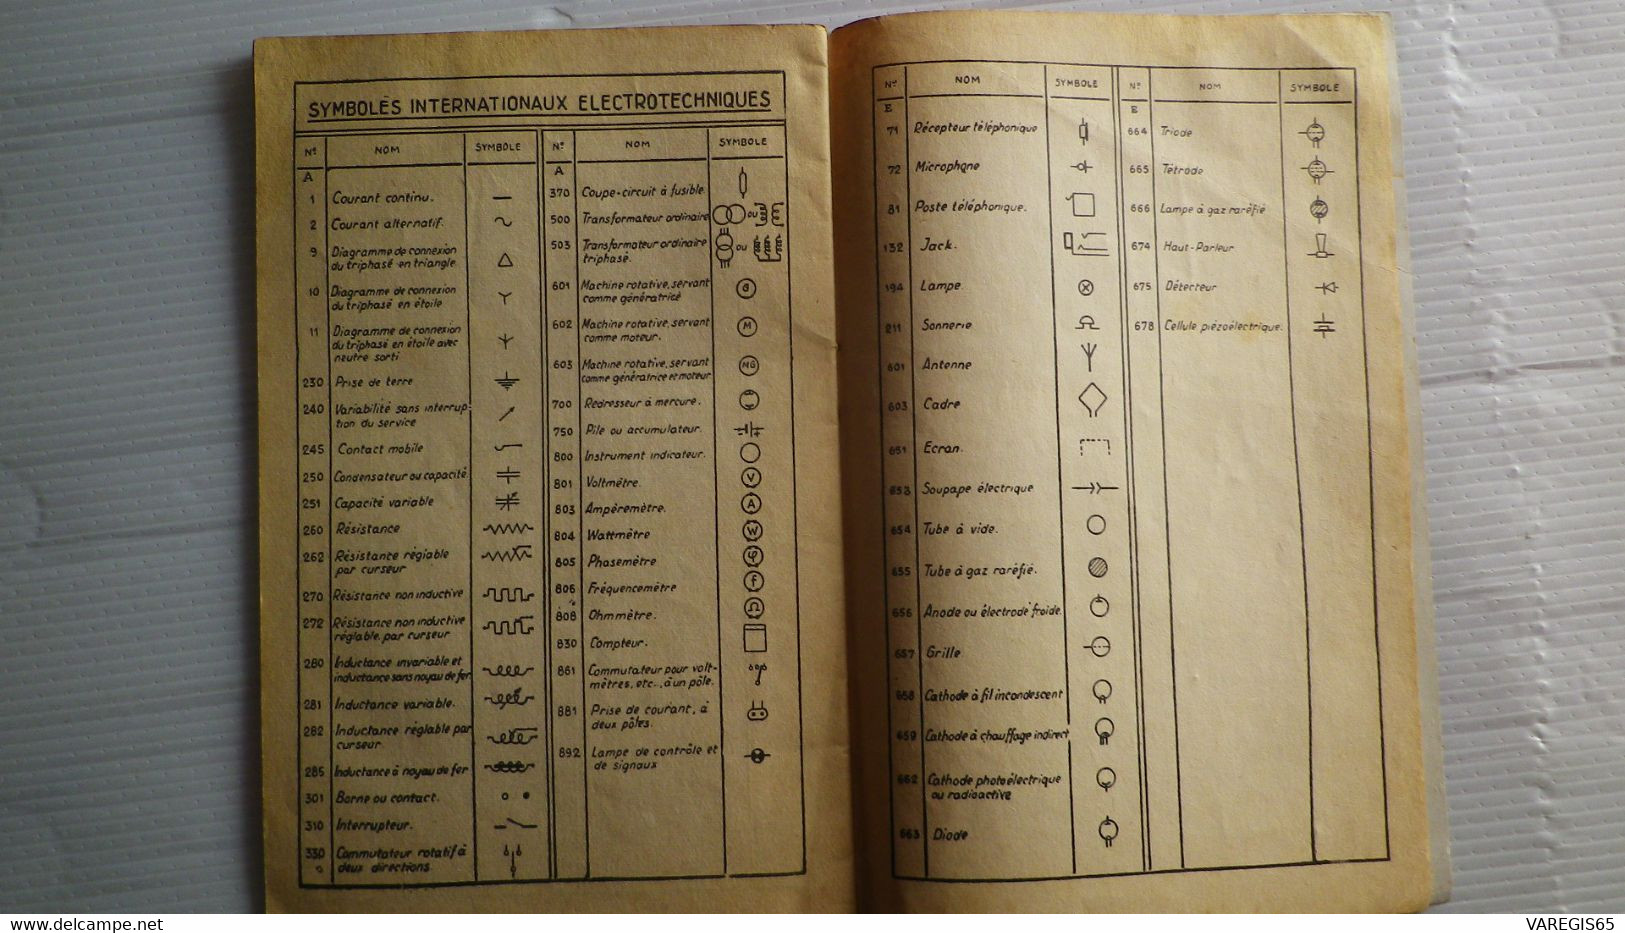 SYMBOLES INTERNATIONAUX ELECTROTECHNIQUES
Nº NOM SYMBOLE
A
1 Courant continu.
2 Courant alternatif.
9 Diagramme de connexion
du triphasé en triangle
10 Diagramme de connexion
du triphasé en étoile
11 Diagramme de connexion
du triphasé en étoile avec
neutre sorti
230 Prise de terre
240 Variabilité sans interrup-
tion du service
245 Contact mobile
250 Condensateur ou capacité.
251 Capacité variable
260 Résistance
262 Résistance réglable
par curseur
270 Résistance non inductive
272 Résistance non inductive
réglable par curseur
280 Inductance invariable et
inductance sans noyau de fer
281 Inductance variable.
282 Inductance réglable par
curseur
285 Inductance à noyau de fer
301 Borne ou contact.
310 Interrupteur.
330 Commutateur rotatif à
deux directions.
Nº NOM SYMBOLE
A
370 Coupe-circuit à fusible
500 Transformateur ordinaire ou
503 Transformateur ordinaire ou
triphasé.
601 Machine rotative, servant G
comme génératrice
602 Machine rotative, servant M
comme moteur.
603 Machine rotative, servant MG
comme génératrice et moteur
700 Redresseur à mercure.
750 Pile ou accumulateur.
800 Instrument indicateur.
801 Voltmètre. V
803 Ampèremètre. A
804 Wattmètre W
805 Phasemètre φ
806 Fréquencemètre f
808 Ohmmètre. Ω
830 Compteur.
861 Commutateur pour volt-
mètres, etc., à un pôle.
881 Prise de courant, à
deux pôles.
892 Lampe de contrôle et
de signaux
Nº NOM SYMBOLE
E
71 Récepteur téléphonique
72 Microphone
81 Poste téléphonique.
132 Jack.
194 Lampe.
211 Sonnerie
601 Antenne
603 Cadre
651 Ecran.
653 Soupape électrique
654 Tube à vide.
655 Tube à gaz raréfié.
656 Anode ou électrode froide.
657 Grille
658 Cathode à fil incandescent
659 Cathode à chauffage indirect
662 Cathode photoélectrique
ou radioactive
663 Diode
Nº NOM SYMBOLE
E
664 Triode
665 Tétrode
666 Lampe à gaz raréfié
674 Haut-Parleur
675 Détecteur
678 Cellule piézoélectrique.
delcampe.net
VAREGIS65